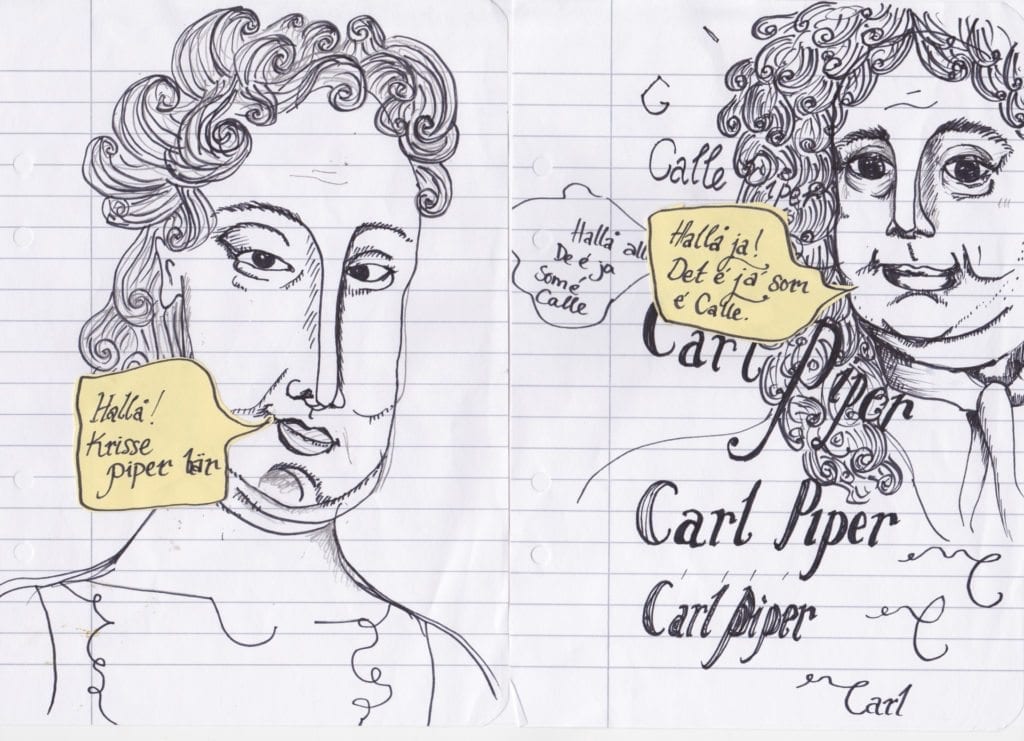 Hallå!
Krisse
piper här
G
Calle
Piper
Hallå all
De é ja
Som é
Calle
Hallå ja!
Det é ja som
é Calle.
Carl Piper
Carl Piper
Carl Piper
C
C
Carl